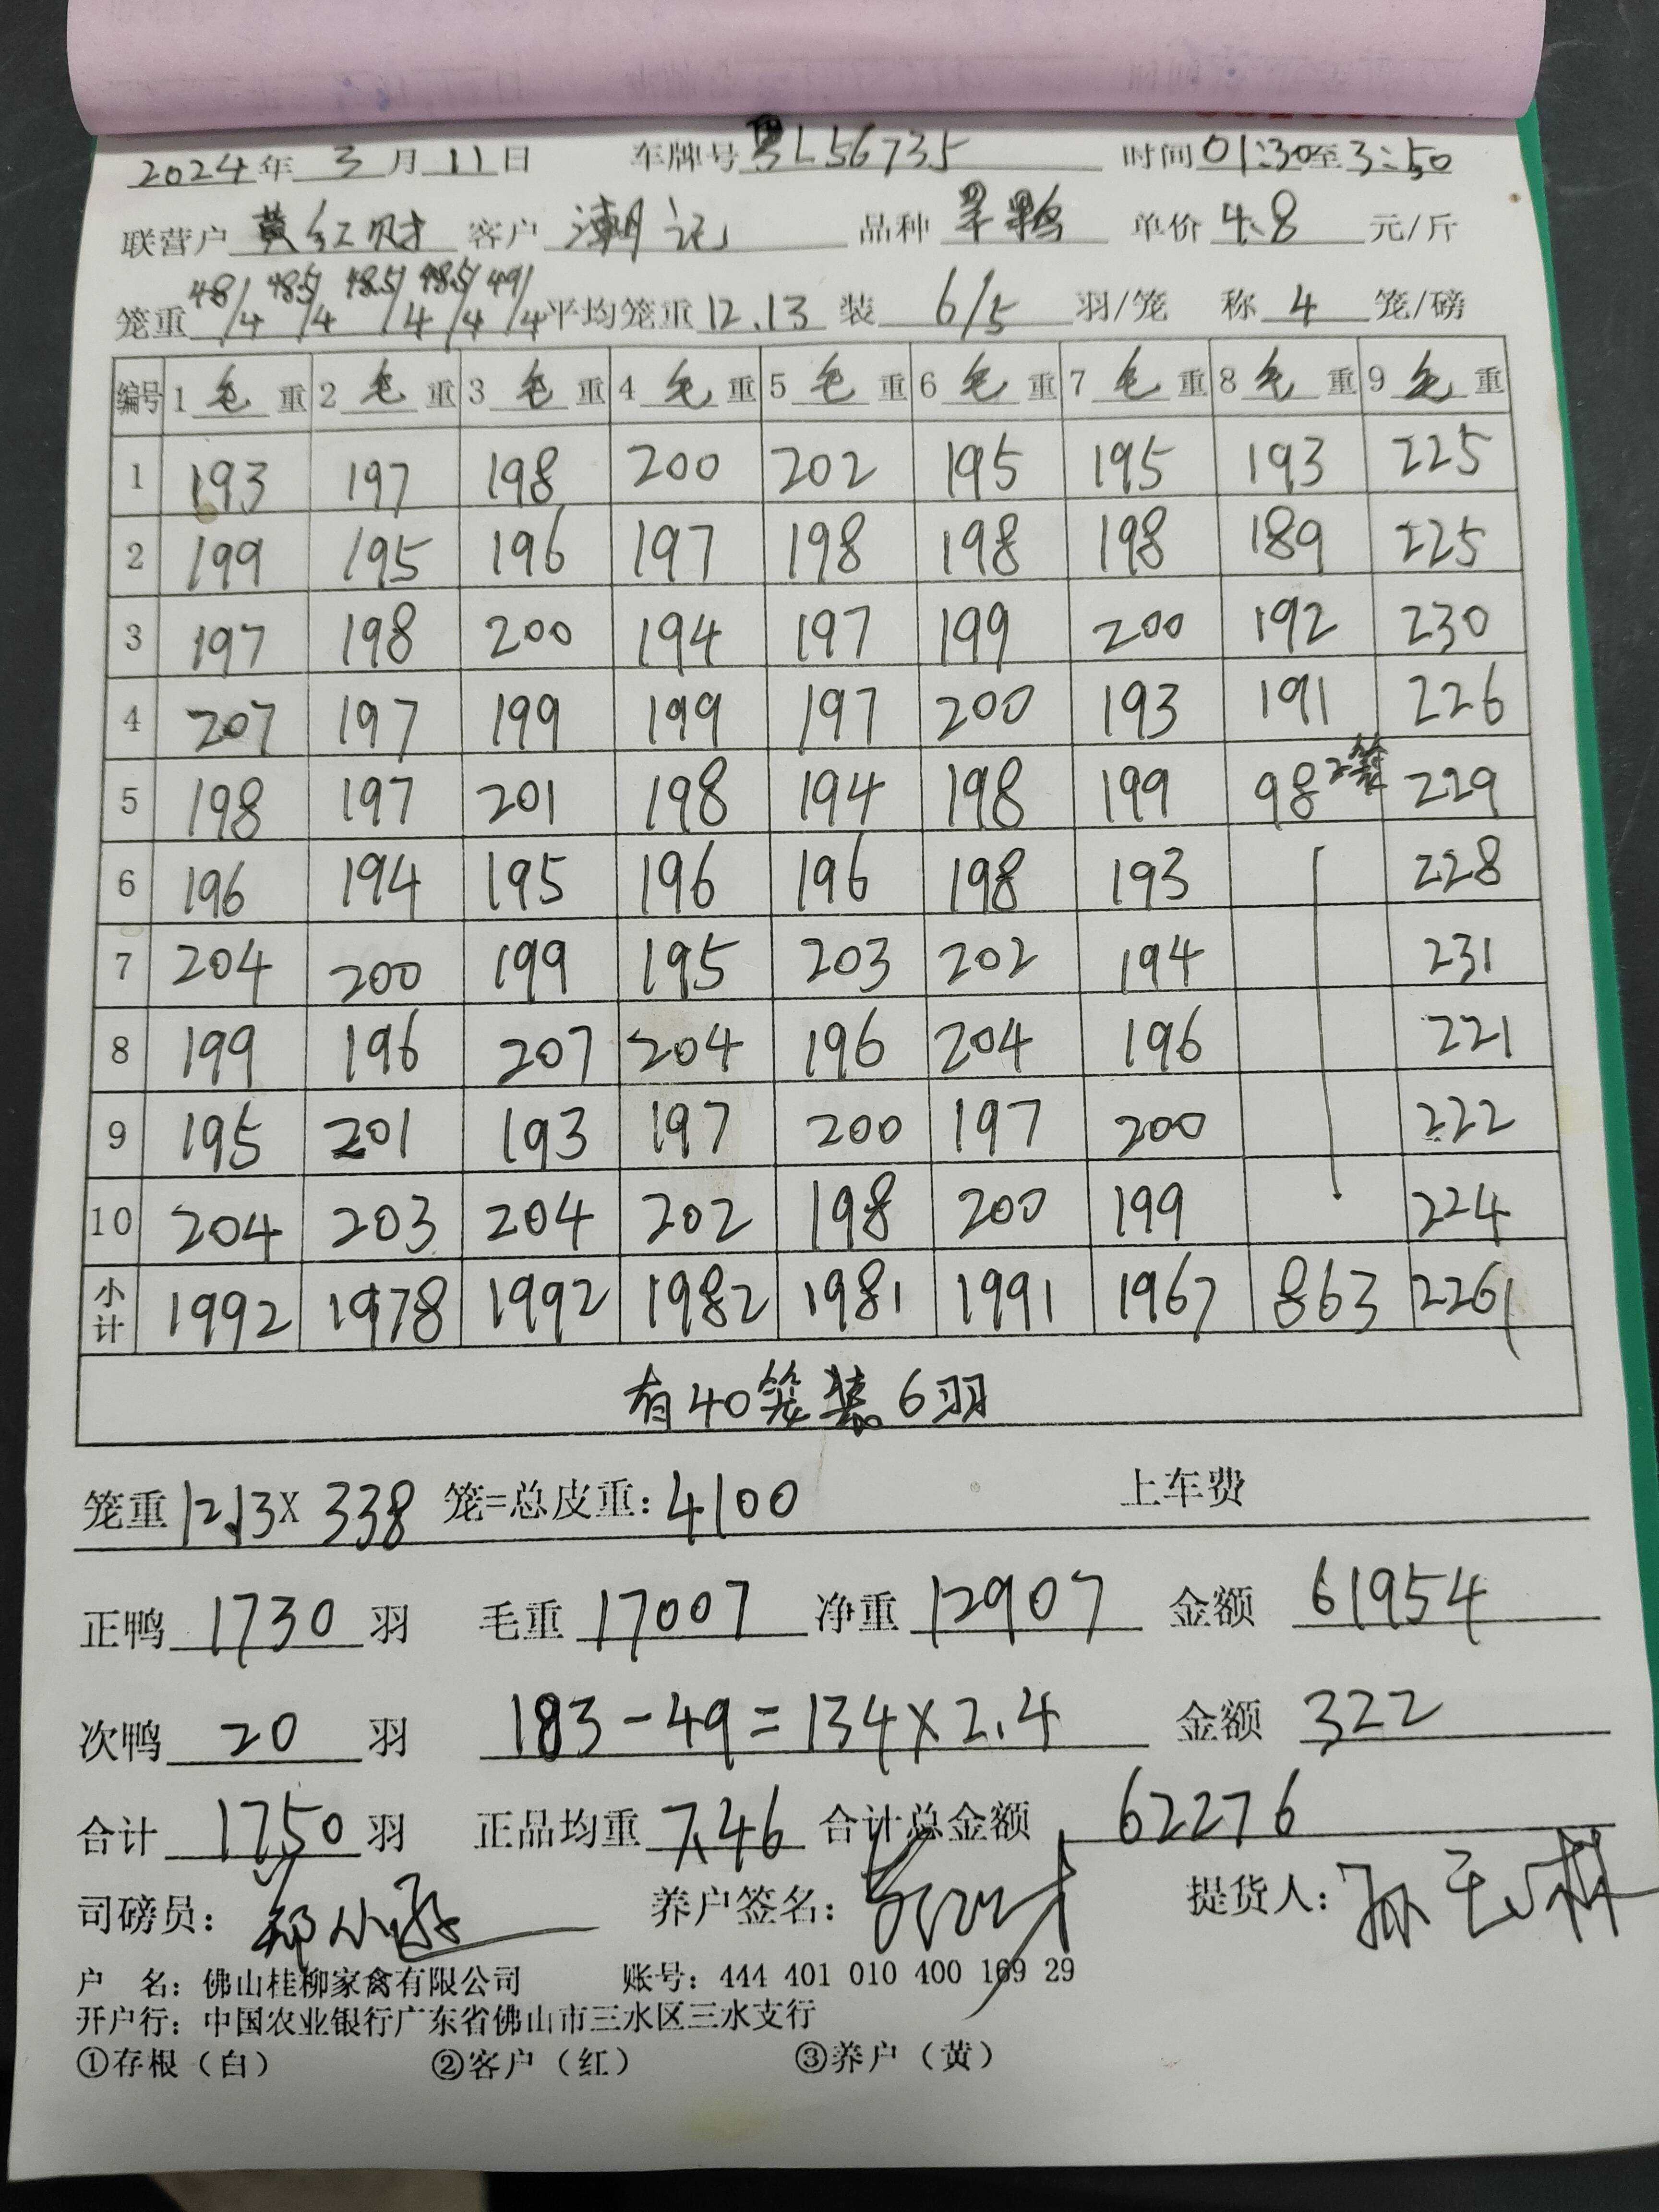 2024年 3月 11日 车牌号 粤L56735 时间 01:30至3:50
联营户 黄红财 客户 潮记 品种 单价 4.8 元/斤
笼重 48/4 48.5/4 48.5/4 48.5/4 49/4 平均笼重 12.13 装 6/5 羽/笼 称 4 笼/磅
编号 1 毛 重 2 毛 重 3 毛 重 4 毛 重 5 毛 重 6 毛 重 7 毛 重 8 毛 重 9 毛 重
1 193 197 198 200 202 195 195 193 225
2 199 195 196 197 198 198 198 189 225
3 197 198 200 194 197 199 200 192 230
4 207 197 199 199 197 200 193 191 226
5 198 197 201 198 194 198 199 98 2笼 229
6 196 194 195 196 196 198 193 228
7 204 200 199 195 203 202 194 231
8 199 196 207 204 196 204 196 221
9 195 201 193 197 200 197 200 222
10 204 203 204 202 198 200 199 224
小计 1992 1978 1992 1982 1981 1991 1967 863 2261
有40笼装6羽
笼重 12.13 X 338 笼=总皮重: 4100 上车费
正鸭 1730 羽 毛重 17007 净重 12907 金额 61954
次鸭 20 羽 183-49=134×2.4 金额 322
合计 1750 羽 正品均重 7.46 合计总金额 62276
司磅员: 养户签名: 提货人:
户 名: 佛山桂柳家禽有限公司 账号: 444 401 010 400 169 29
开户行: 中国农业银行广东省佛山市三水区三水支行
①存根（白） ②客户（红） ③养户（黄）